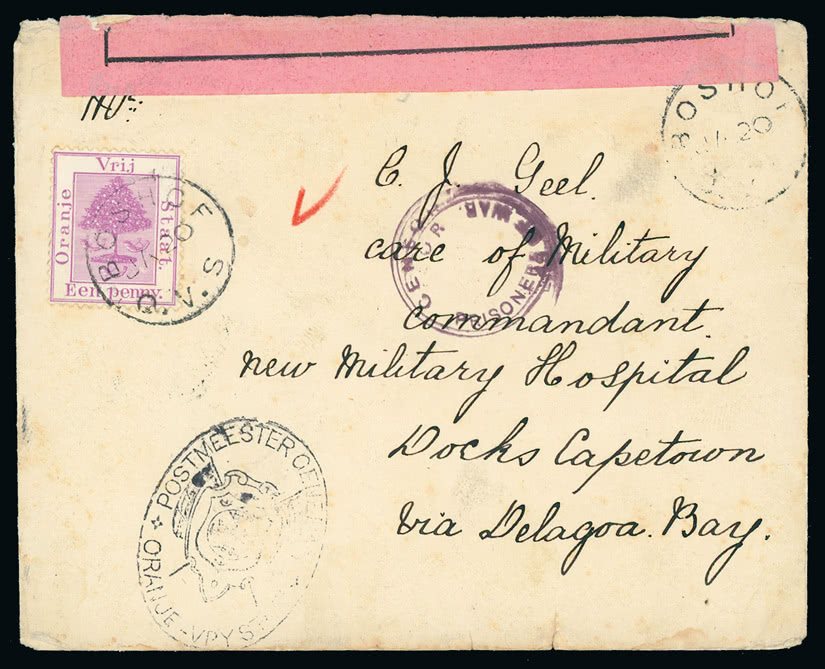 No:
C. J. Geel.
care of Military
Commandant.
New Military Hospital
Docks Capetown
Via Delagoa. Bay.
Vrij
Oranje
Staat.
Een penny.
BOSHOF
20
O.V.S.
BOSHOF
20
CENSOR
PRISONERS OF WAR
POSTMEESTER GENERAAL
ORANJE-VRYSTAAT